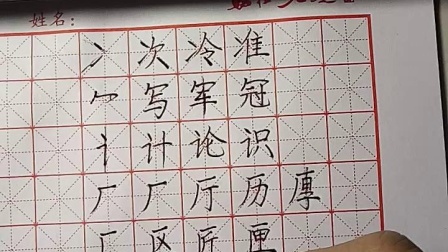 姓名:
冫次冷准
冖写军冠
讠计论识
厂厂厅历厚
匚区匠匣